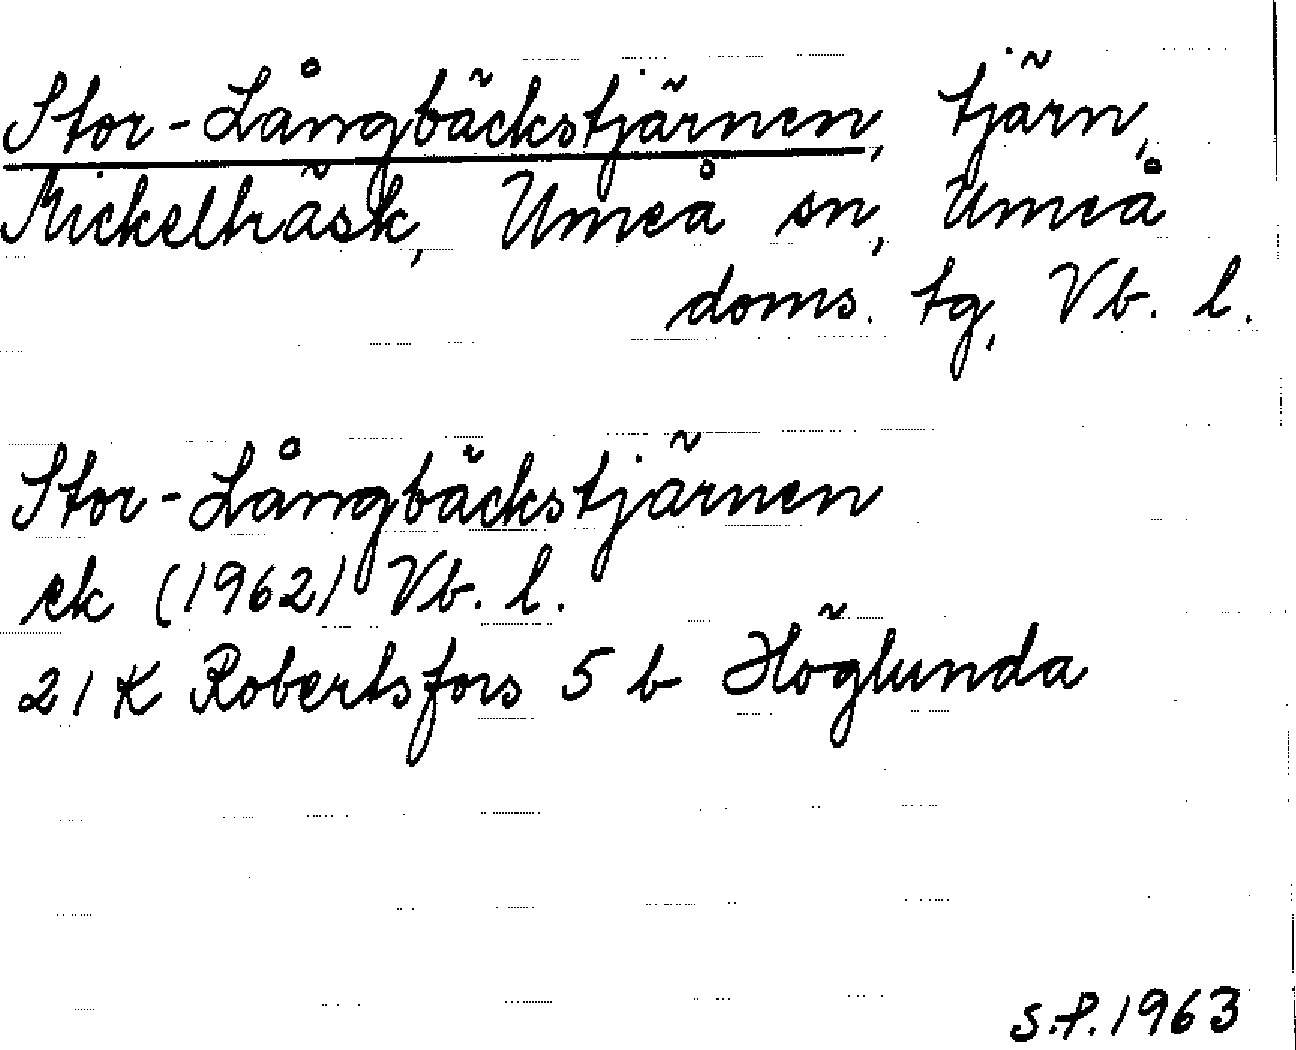 Stor-Långbäckstjärnen, tjärn,
Mickelträsk, Umeå sn, Umeå
doms. tg, Vb. l.
Stor-Långbäckstjärnen
ek (1962) Vb. l.
21 K Robertsfors 5 b Höglunda
S.P. 1963